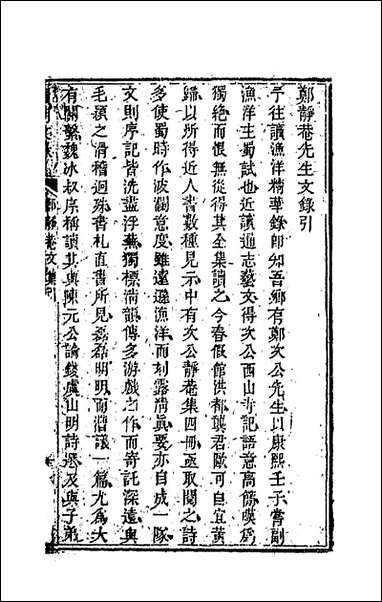 鄭靜菴先生文錄引
予往讀漁洋精華錄卽知吾鄉有鄭次公先生以康熙壬子嘗副
漁洋主蜀試也近讀通志藝文得次公西山寺記語意高簡嘆爲
獨絕而恨無從得其全集讀之今春假館洪都龔君歐可自宜黃
歸以所得近人書數種見示中有次公靜菴集四冊亟取閱之詩
多使蜀時作波瀾意度雖遠遜漁洋而刻露清眞要亦自成一隊
文則序記皆洗盡浮蕪獨標清韻傳多游戲之作而寄託深遠與
毛穎之滑稽迥殊書札直書所見磊磊明明而謚議一篇尤爲大
有關繫魏冰叔序稱讀其與陳元公論錢虞山明詩選及與子弟